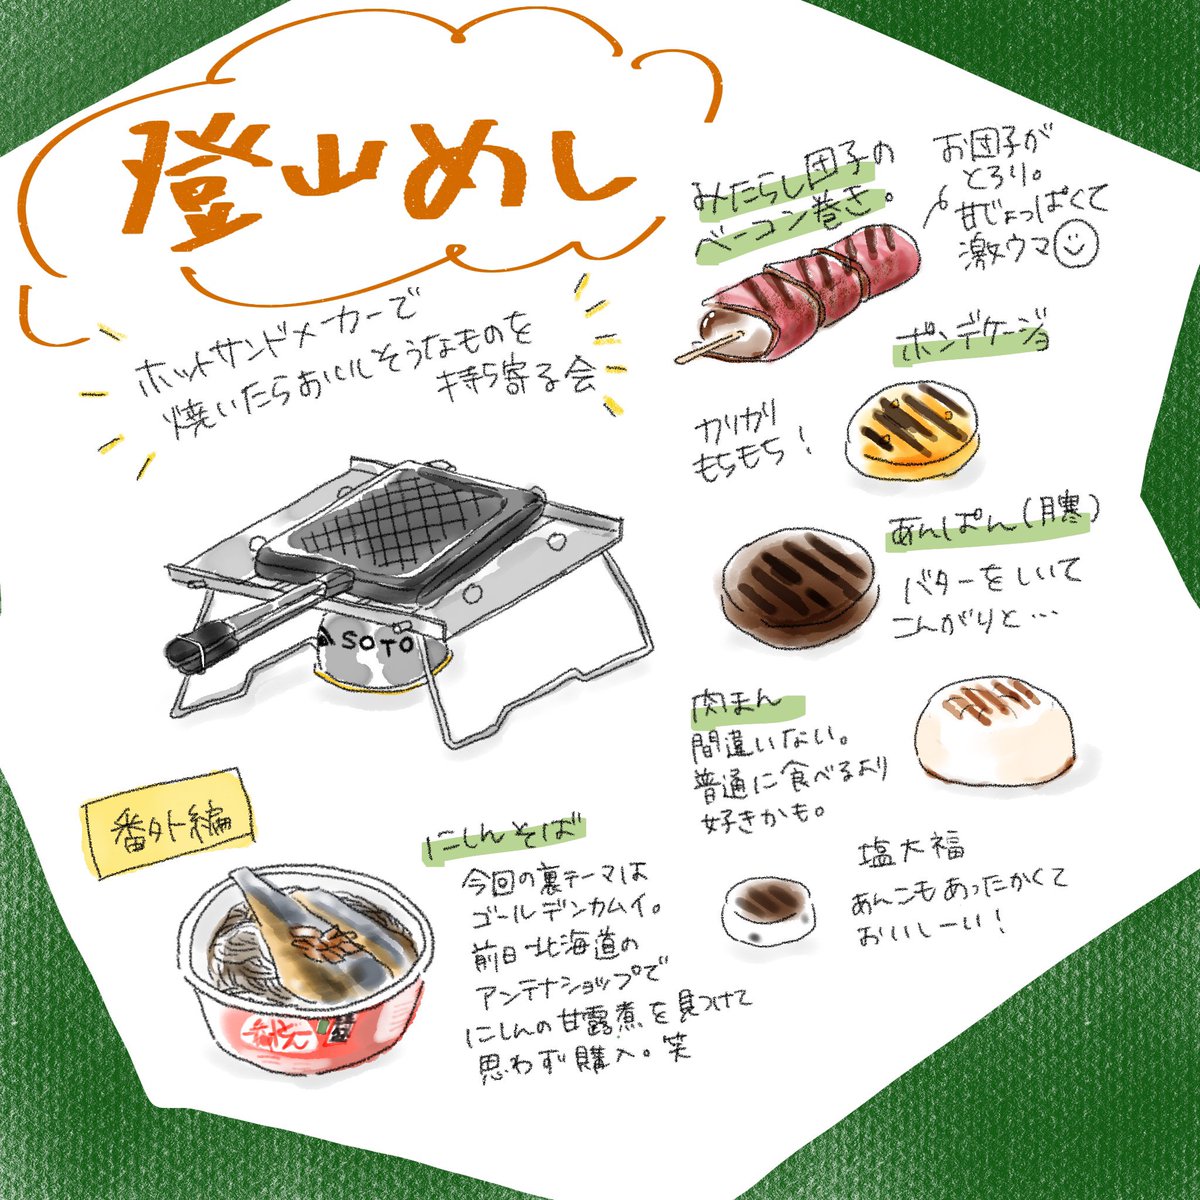 登山めし
ホットサンドメーカーで
焼いたらおいしそうなものを
持ち寄る会
SOTO
みたらし団子の
ベーコン巻き。
お団子が
とろり。
甘じょっぱくて
激ウマ
ポンデケージョ
カリカリ
もちもち！
あんぱん(月寒)
バターをしいて
こんがりと…
肉まん
間違いない。
普通に食べるより
好きかも。
塩大福
あんこもあったかくて
おいしーい！
番外編
にしんそば
今回の裏テーマは
ゴールデンカムイ。
前日北海道の
アンテナショップで
にしんの甘露煮を見つけて
思わず購入。笑